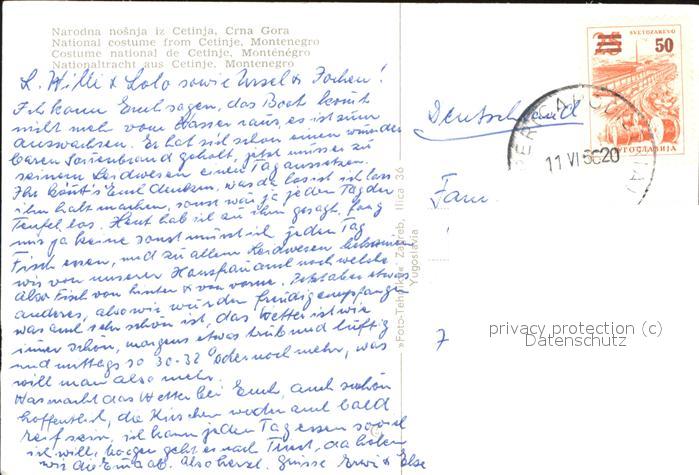 Narodna nošnja iz Cetinja, Crna Gora
National costume from Cetinje, Montenegro
Costume national de Cetinje, Monténégro
Nationaltracht aus Cetinje, Montenegro
L. Willi & Lolo sowie Ursel & Jochen!
Ich kann Euch sagen, das Boot kommt
nicht mehr vom Wasser raus, es ist zum
auswachsen. Er hat sich schon einen wunder
baren Sonnenbrand geholt, jetzt müsser zu
seinem Leidwesen einen Tag aussetzen.
Ihr könnt's Euch denken, was da los ist ich lass
ihn halt machen, sonst wär ja jeden Tag der
Teufel los. Heut hab ich zu ihm gesagt, fang
mir ja keine sonst müsst ich jeden Tag
Fisch essen, und zu allem Leidwesen bekommen
wir von unserer Hausfrau auch noch welche
also Fisch von hinten & von vorne. Jetzt aber etwas
anderes, also wir wurden freudig empfangen
was auch sehr schön ist, das Wetter ist wie
immer schön, morgens etwas trüb und luftig
und mittags so 30-32° oder noch mehr, was
will man also mehr.
Was macht das Wetter bei Euch, auch schön
hoffentlich, die Kirschen werden auch bald
reif sein, ich kann jeden Tag essen soviel
ich will, morgen geht es nach Tivat, da holen
wir die ab. Also herzl. Grüsse Erwi & Else
»Foto-Tehnika« Zagreb, Ilica 36
Yugoslavia
Deutschland
Fam.
7
SVETOZAREVO
25
50
JUGOSLAVIJA
11 VI 20
privacy protection (c)
Datenschutz